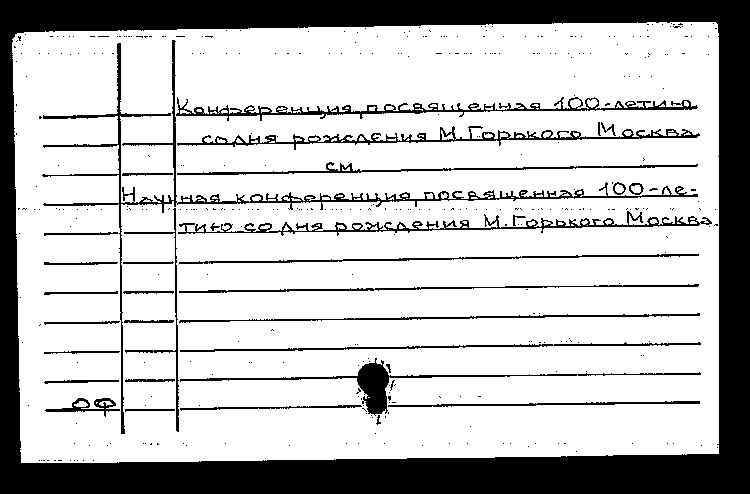 Конференция, посвященная 100-летию
со дня рождения М. Горького Москва
см.
Научная конференция, посвященная 100-ле-
тию со дня рождения М. Горького Москва
ОФ